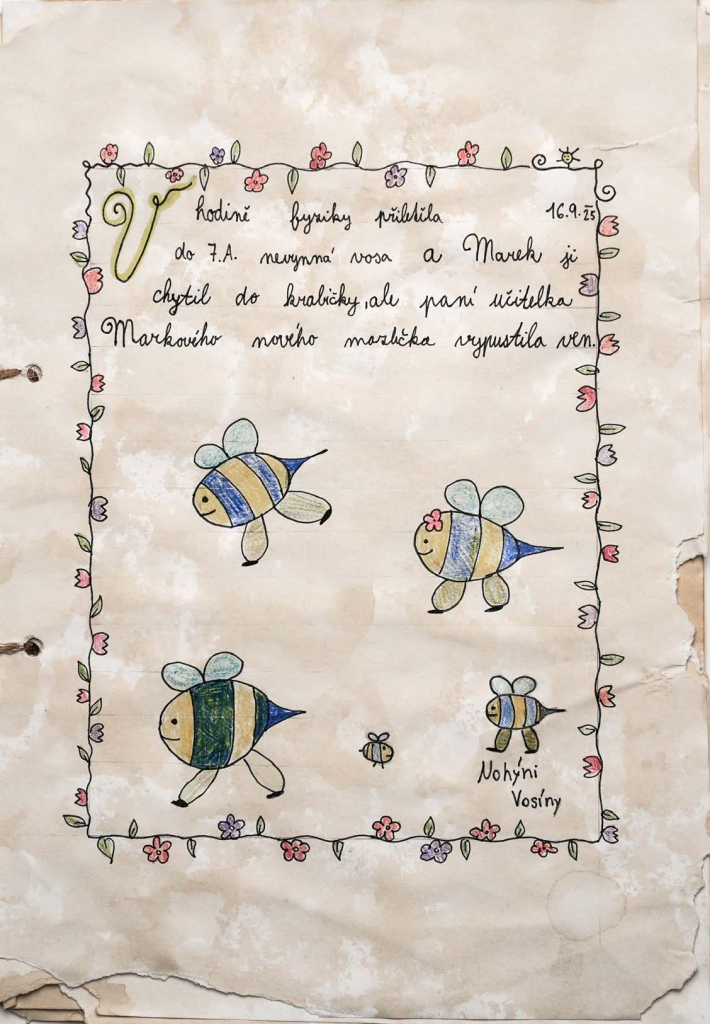 V hodině fyziky přiletěla 16.9.25
do 7.A. nevynná vosa a Marek ji
chytil do krabičky, ale paní učitelka
Markového nového mazlíčka vypustila ven.
Nohýni
Vosíny